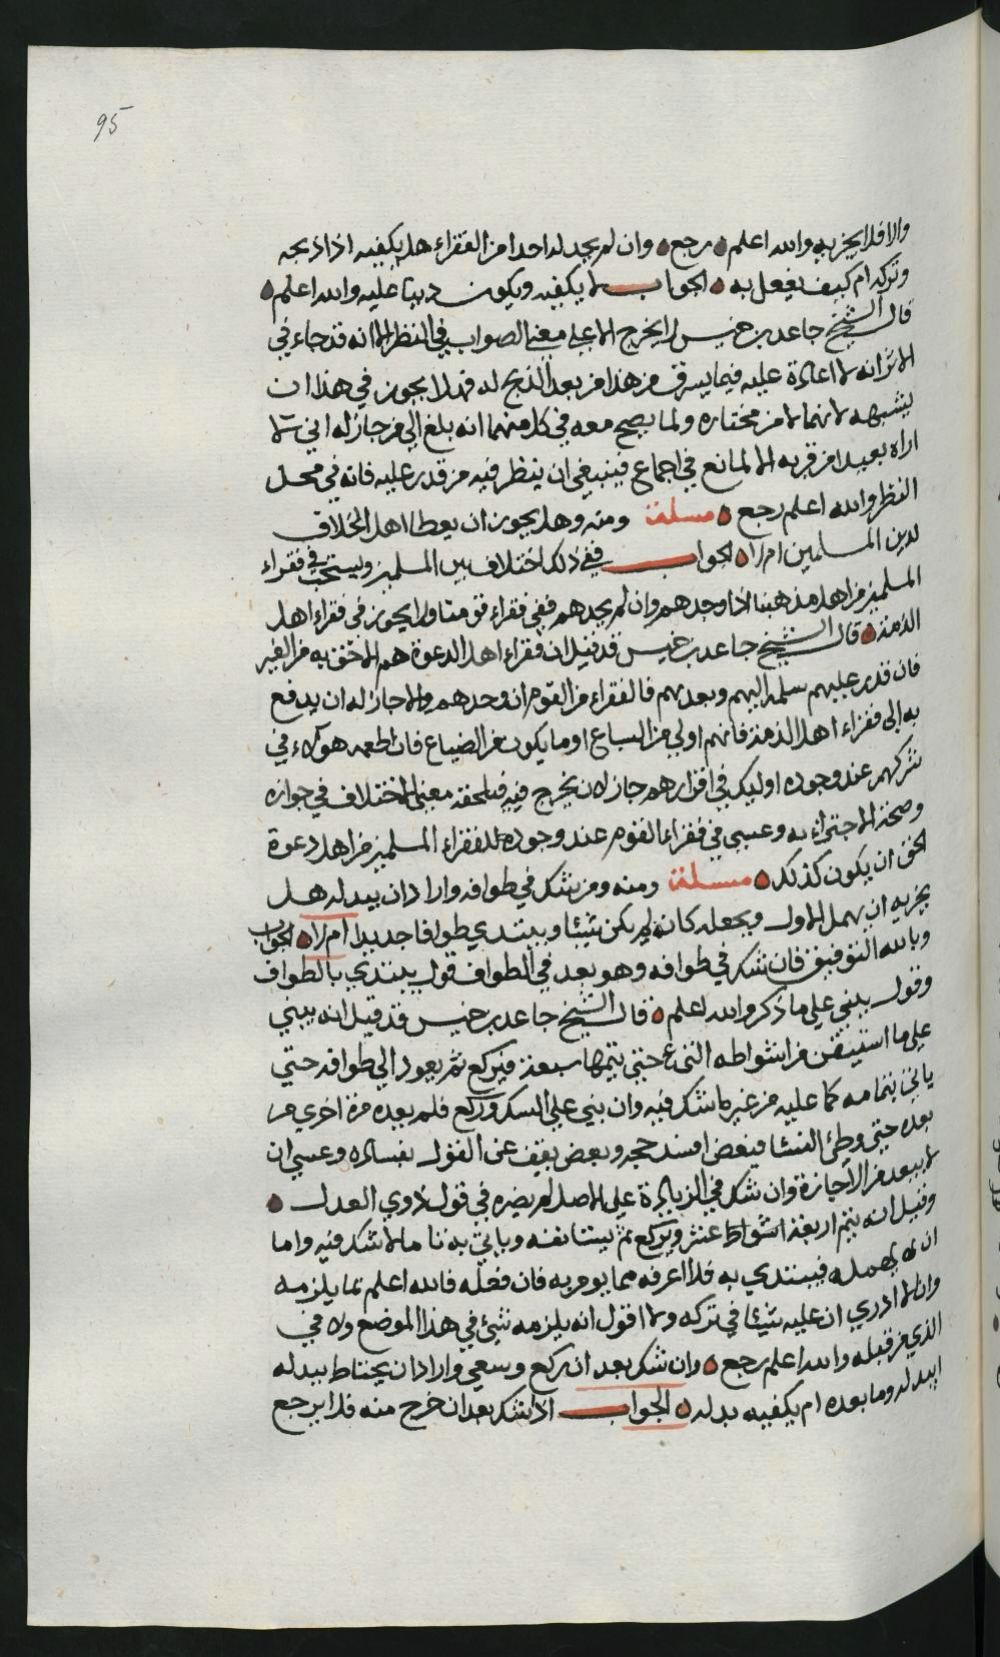 95
والا فلا يجزيه والله اعلم رجع وان لم يجد له احدا من الفقراء هل يكفيه اذا ذبحه
وتركه ام كيف يفعل به الجواب لا يكفيه ويكون دينا عليه والله اعلم
قال الشيخ جاعد بن خميس لا يخرج الا على معنى الصواب في النظر الا انه قد جاء في
الاثر انه لا اعادة عليه فيما يسرق من هذا من بعد الذبح له فهل لا يجوز في هذا ان
يشبهه لانهما لا من مختاره ولما يصح معه في كل منهما انه بلغ الى من جاز له اني لا
اراه بعيدا من قربه الا لمانع في اجماع فينبغي ان ينظر فيه من قدر عليه فانه في محل
النظر والله اعلم رجع مسئلة ومنه وهل يجوز ان يعطا اهل الخلاف
لدين المسلمين ام لا الجواب ففي ذلك اختلاف بين المسلمين ويستحب في فقراء
المسلمين من اهل مذهبنا اذا وجدهم وان لم يجدهم ففي فقراء قومنا ولا يجوز في فقراء اهل
الذمة قال الشيخ جاعد بن خميس قد قيل ان فقراء اهل الدعوة هم الاحق به من الغير
فان قدر عليهم سلمه اليهم وبعدهم فالفقراء من القوم ان وجدهم والا جاز له ان يدفع
به الى فقراء اهل الذمة فانهم اولى من السباع او ما يكون من الضياع فان اطعمه هؤلاء في
شركهم عند وجوده اوليك في اقرارهم جاز لان يخرج فيه فيلحقه معنى الاختلاف في جوازه
وصحة الاجتزاء به وعسى في فقراء القوم عند وجوده للفقراء المسلمين من اهل دعوة
الحق ان يكون كذلك مسئلة ومنه ومن شك في طوافه واراد ان يبدله هل
يجزيه ان يهمل الاول ويجعله كانه لم يكن شيئا ويبتدي طوافا جديدا ام لا الجواب
وبالله التوفيق فان شك في طوافه وهو بعد في الطواف قول يبتدي بالطواف
وقول يبني على ما ذكر والله اعلم قال الشيخ جاعد بن خميس قد قيل انه يبني
على ما استيقن من اشواطه التي حتى يتمها سبعة فيركع ثم يعود الى طوافه حتى
ياتي بتمامه كما عليه من غير ما شك فيه وان بني على الشك وركع فلم يعده مرة اخرى من
بعده حتى وطئ النسا فبعض افسد حجه وبعض يقف عن القول بفساده وعسى ان
لا يبعد من الاجازة وان شك في الزيادة على الاصل لم يضره في قول ذوي العدل
وقيل انه يتم اربعة اشواط عشر ويركع ثم يستانفه وياتي به تاما لا شك فيه واما
ان يهمله فيبتدي به فلا اعرفه مما يومر به فان فعله فالله اعلم بما يلزمه
وان لا ادري ان عليه شيئا في تركه ولا اقول انه يلزمه شيئ في هذا الموضع ولا في
الذي من قبله والله اعلم رجع وان شك بعد ان ركع وسعى واراد ان يحتاط يبدله
ايبدله وما بعده ام يكفيه بدله الجواب اذا شك بعد ان خرج منه فلا يرجع